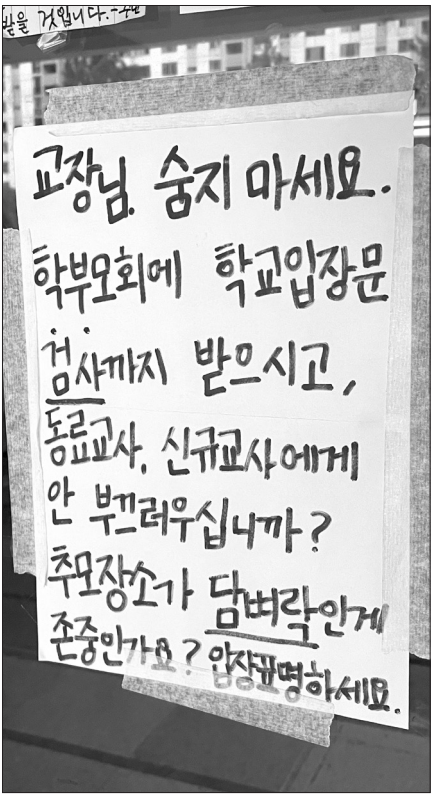 받을 것입니다.
교장님. 숨지 마세요.
학부모회에 학교입장문
검사까지 받으시고,
동료교사, 신규교사에게
안 부끄러우십니까?
추모장소가 담벼락인게
존중인가요? 입장표명하세요.